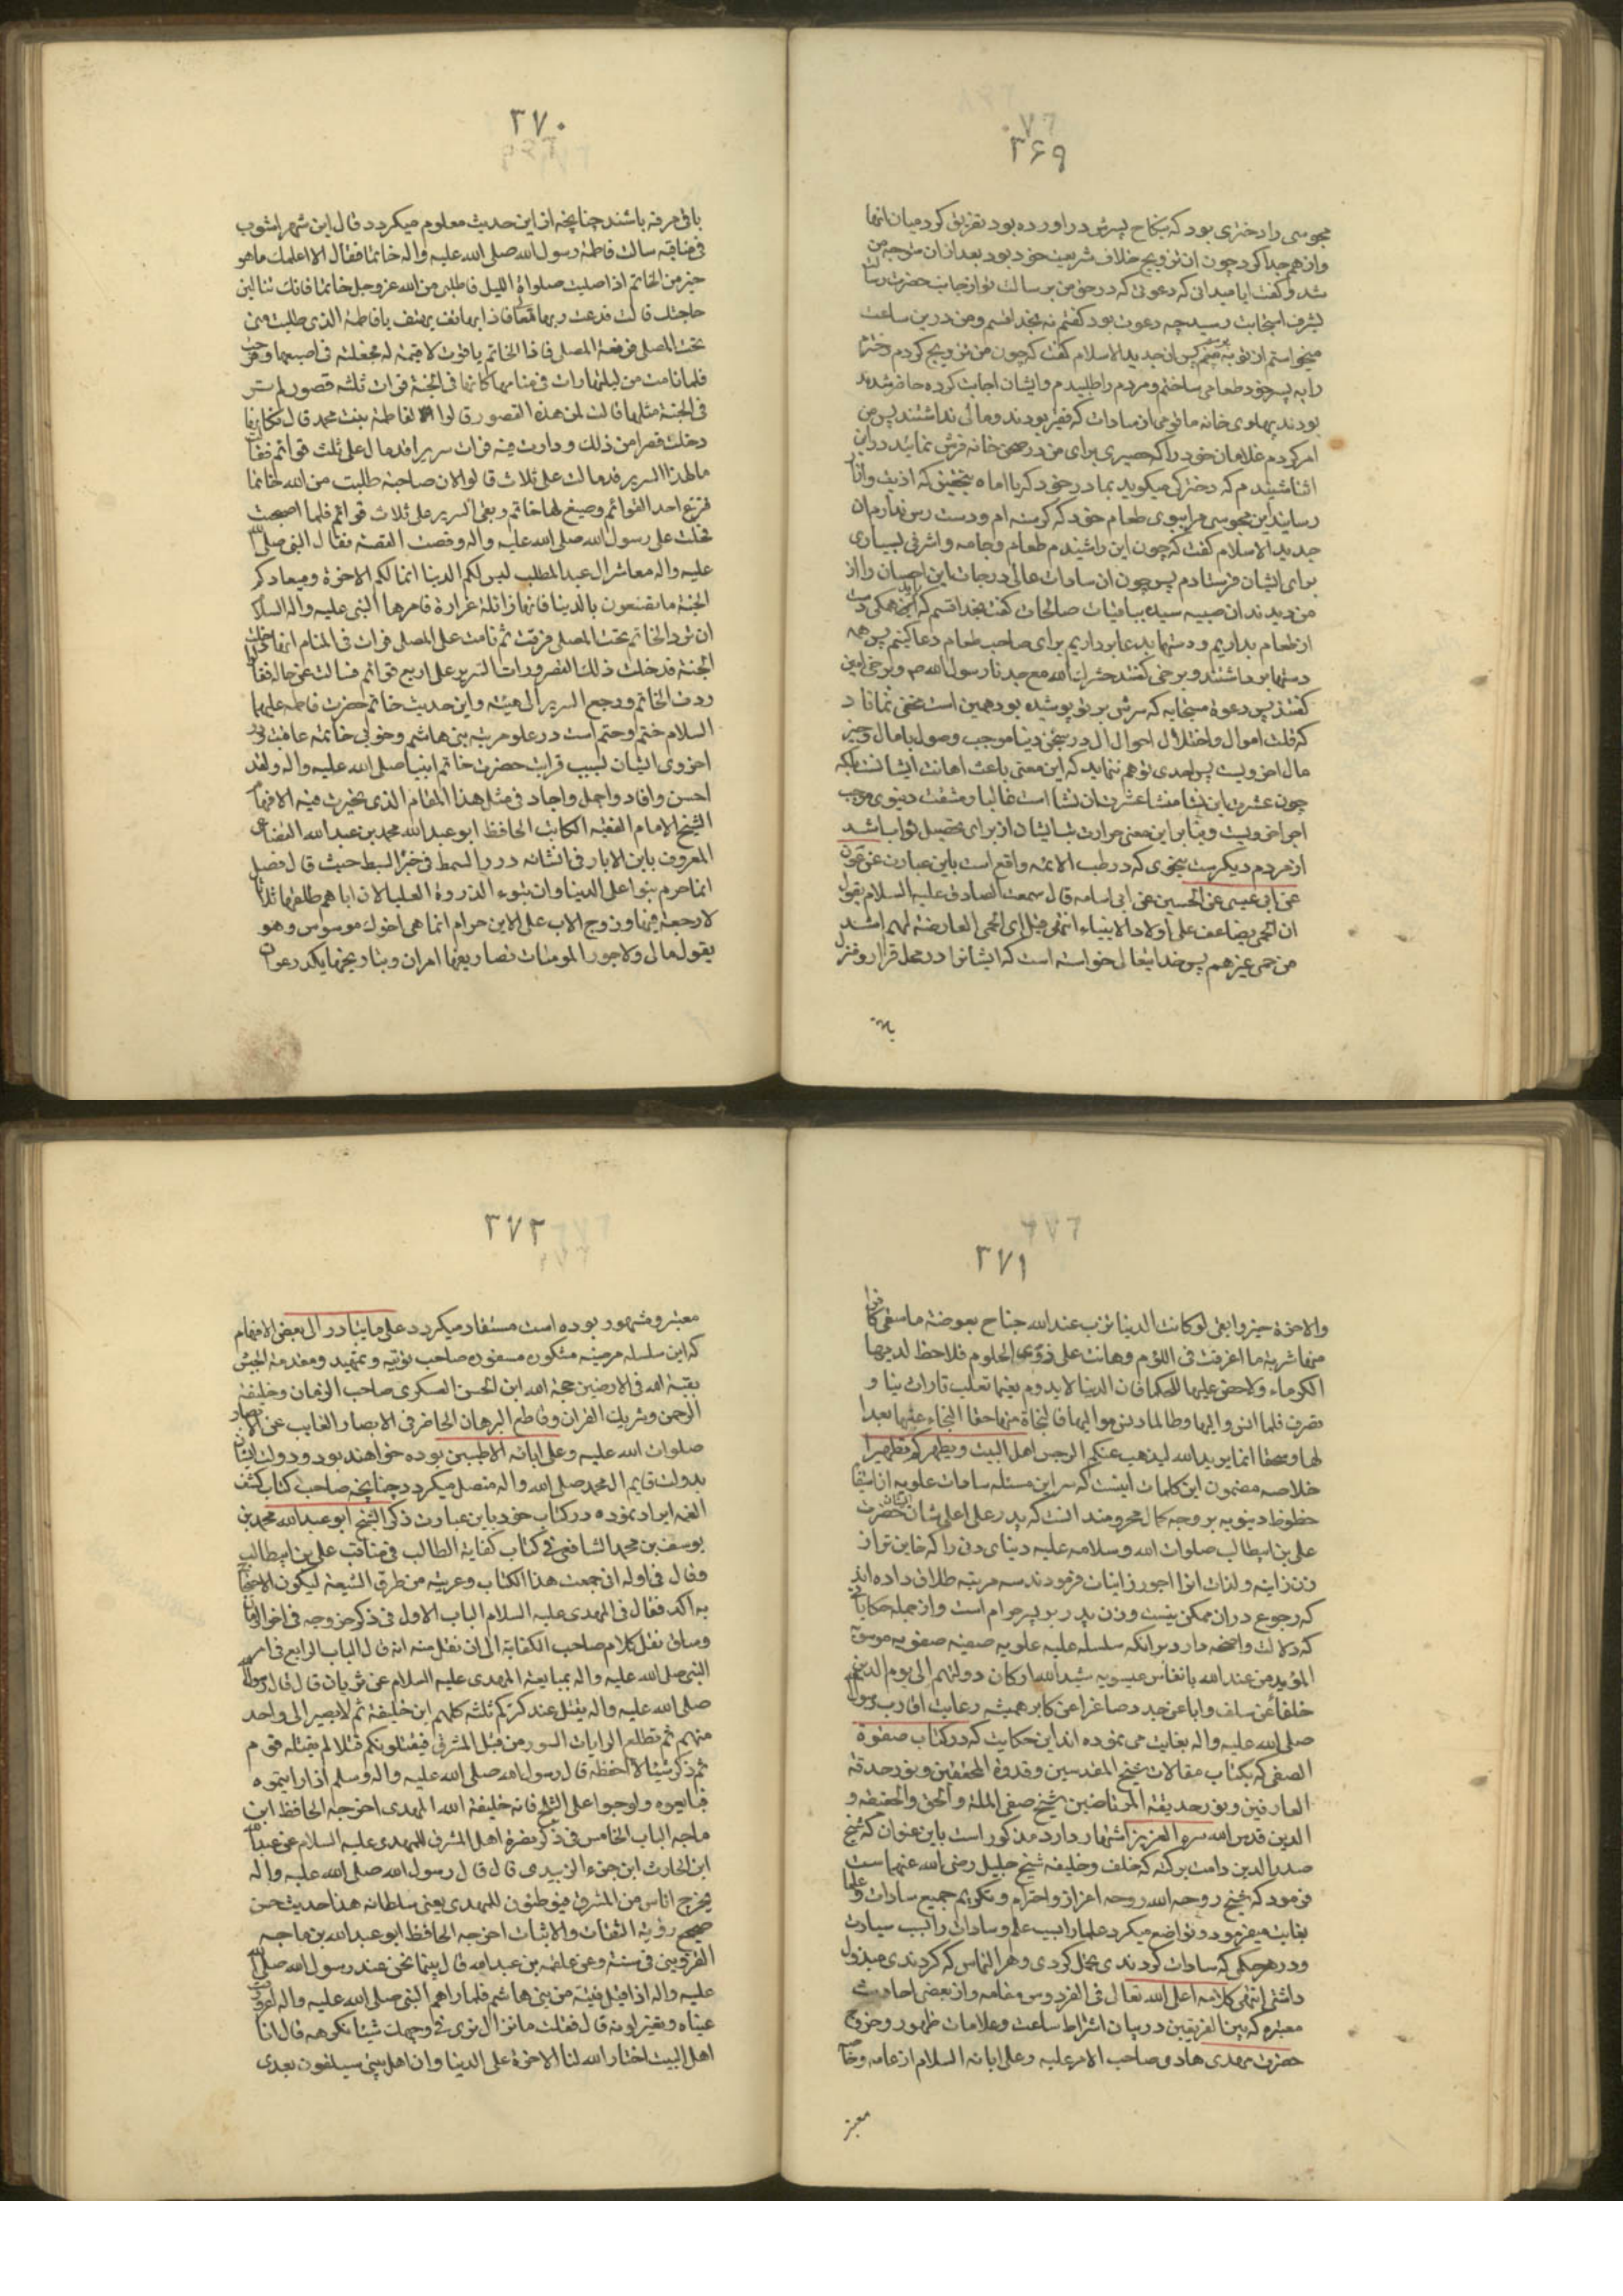 ۳۶۹
مجوسی را دختری بود که بنکاح پسرش در اورده بود تفریق کرد میان انها
وازهم جدا کرد چون ان تزویج خلاف شریعت خود بود بعد ازان متوجه من
شد و کفت ایا میدانی که دعوتی که در حق من برسالت تو از جانب حضرت رسالت
بشرف استجابت رسید چه دعوت بود کفتم نه بخدا قسم ومن درین ساعت
میخواستم از تو بپرسم پس ان جدید الاسلام کفت که چون من تزویج کردم دخترم
را به پسر خود طعامی ساختم ومردم را طلبیدم وایشان اجابت کرده حاضر شدند
بودند پهلوی خانه ما قومی از سادات که فقیر بودند ومالی نداشتند پس من
امر کردم غلامان خود را که حصیری برای من در صحن خانه فرش نمایند دراین
اثنا شنیدم که دخترکی میکوید بمادر خود که یا اماه بتحقیق که اذیت واذا
رسانید این مجوسی مرا ببوی طعام خود که کرسنه ام ودست رس ندارم ان
جدید الاسلام کفت که چون این را شنیدم طعام وجامه واشرفی بسیاری
برای ایشان فرستادم پس چون ان سادات عالی درجات این احسان را از
من دیدند ان صبیه سیده بباقیات صالحات کفت بخدا قسم که همکی دست
از طعام بداریم ودستها بدعا برداریم برای صاحب طعام دعا کنیم پس همه
دستها برداشتند وبرخی کفتند حشرک الله مع جدنا رسول الله ص وبرخی امین
کفتند پس دعوة مستجابه که سرش بر تو پوشیده بود همین است مخفی نماناد
که قلت اموال واختلال احوال ال در سجن دنیا موجب وصول بامال وخیر
مال اخرویست پس احدی توهم ننماید که این معنی باعث اهانت ایشانست بلکه
چون عشرت این نشا منشا عشرت ان نشا است غالبا ومشقت دنیوی موجب
اجر اخرویست وبنابر این معنی حرارت تب ایشان از برای تحصیل ثواب باشد
از مردم دیکرست بنحوی که در طب الائمه واقع است باین عبارت عن عون
عن ابی عیسی عن الحسین عن ابی اسامه قال سمعت الصادق علیه السلام یقول
ان الحمی یضاعف علی اولاد الانبیاء انتهی قیل ای الحمی العارضة لهم اشد
من حمی غیرهم پس خدایتعالی خواسته است که ایشانرا در محل قرار ومنزل
۳۷۰
باقی مرفه باشند چنانچه از این حدیث معلوم میکردد قال ابن شهراشوب
فی مناقبه سالت فاطمة رسول الله صلی الله علیه واله خاتما فقال الا اعلمک ما هو
خیر من الخاتم اذا صلیت صلوة اللیل فاطلبی من الله عزوجل خاتما فانک تنالین
حاجتک قالت فدعت ربها تعالی فاذا بهاتف یهتف یا فاطمة الذی طلبت منی
تحت المصلی فرفعة المصلی فاذا الخاتم یاقوت لا قیمة له فجعلته فی اصبعها وفرحت
فلما نامت من لیلتها رات فی منامها کانها فی الجنة فرات ثلثه قصور لم تر
فی الجنة مثلها قالت لمن هذه القصور قالوا لفاطمة بنت محمد قال فکانها
دخلت قصرا من ذلک ودارت فیه فرات سریرا قد مال علی ثلث قوائم فقالت
ما لهذا السریر قد مالت علی ثلاث قالوا لان صاحبته طلبت من الله خاتما
فنزع احد القوائم وصیغ لها خاتم وبقی السریر علی ثلاث قوائم فلما اصبحت
دخلت علی رسول الله صلی الله علیه واله وقصت القصة فقال النبی صلی الله
علیه واله معاشر ال عبد المطلب لیس لکم الدنیا انما لکم الاخرة ومیعادکم
الجنة ما تصنعون بالدنیا فانها زائلة غرارة فامرها النبی علیه واله السلام
ان ترد الخاتم تحت المصلی فردت ثم نامت علی المصلی فرات فی المنام انها دخلت
الجنة فدخلت ذلک القصر ورات السریر علی اربع قوائم فسالت عن حاله فقالوا
ردت الخاتم ورجع السریر الی هیئته واین حدیث خاتم حضرت فاطمه علیها
السلام ختم وحتم است در علو مرتبه بنی هاشم وخوبی خاتمه عاقبت
اخروی ایشان بسبب قرابت حضرت خاتم انبیا صلی الله علیه واله ولقد
احسن وافاد واجمل واجاد فی مثل هذا المقام الذی تحیرت فیه الافهام
الشیخ الامام الفقیه الکاتب الحافظ ابو عبد الله محمد بن عبد الله القضاعی
المعروف بابن الابار فی انشائه درر السمط فی خبر السبط حیث قال فصل
انما حرم بنو علی الدنیا وان تبوء الذروة العلیا لان اباهم طلقها ثلاثا
لا رجعة فیها وزوج الاب علی الابن حرام انما هی اخوک موسوس وهو
یقول مالی ولاجور المومنات تصاریفها امران وبناریخها یکدرعون
۳۷۱
والاخرة خیر وابقی لو کانت الدنیا تزن عند الله جناح بعوضة ما سقی کافرا
منها شربة ما اعرقت فی اللؤم وهانت علی ذوی الحلوم فلا حظ لدیها
الکرماء ولا حض علیها للحکما فان الدنیا لا یدوم نعیمها تقلب تارات بنا و
تصرف فلما انن والیها وطالما دین موالیها فالنجاة منها حقا النجاء عنها بعدا
لها وسحقا انما یرید الله لیذهب عنکم الرجس اهل البیت ویطهرکم تطهیرا
خلاصه مضمون این کلمات اینست که سر این مسئله سادات علویه از استیفا
حظوظ دنیویه بر وجه کمال محرومند انست که پدر علی اعلی شان ایشان حضرت
علی بن ابیطالب صلوات الله وسلامه علیه دنیای دون را که خاین تر از
زن زانیه ولذات انرا اجور زانیات فرمودند سه مرتبه طلاق داده اند
که رجوع دران ممکن نیست وزن پدر بر پسر حرام است واز جمله حکایاتی
که دلالت واضحه دارد برانکه سلسله علیه علویه صفیه صفویه موسویه
المؤید من عند الله بانفاس عیسویه شید الله ارکان دولتهم الی یوم الدین
خلفا عن سلف وابا عن جد وصاغرا عن کابر همیشه رعایت اقارب رسول
صلی الله علیه واله بغایت می نموده اند این حکایت که در کتاب صفوة
الصفی که بکتاب مقالات شیخ المقدسین وقدوة المحققین ونور حدقة
العارفین ونور حدیقة المرتاضین شیخ صفی الملة والحق والحقیقه و
الدین قدس الله سره العزیز اشتهار دارد مذکور است باین عنوان که شیخ
صدر الدین دامت برکته که خلف وخلیفه شیخ جلیل رضی الله عنهما ست
فرمود که شیخ روحه الله روحه اعزاز واحترام وتکریم جمیع سادات وعلما
بغایت میفرمود وتواضع میکرد علما را بسبب علم وسادات را بسبب سیادت
ودر هر حکمی که سادات کردندی تحمل کردی وهر التماس که کردندی مبذول
داشتی انتهی کلامه اعلی الله تعالی فی الفردوس مقامه واز بعضی احادیث
معتبره که بین الفریقین در بیان اشراط ساعت وعلامات ظهور وخروج
حضرت مهدی هادی صاحب الامر علیه وعلی ابائه السلام از عامه وخاصه
معتبر
۳۷۲
معتبر ومشهور بوده است مستفاد میکردد علی ما یتبادر الی بعض الافهام
که این سلسله مرضیه مشکوره مسفوره صاحب توتیه وتمهید ومقدمة الجیش
بقیة الله فی الارضین حجة الله ابن الحسن العسکری صاحب الزمان وخلیفة
الرحمن وشریک القران وقاطع البرهان الحاضر فی الابصار الغایب عن الابصار
صلوات الله علیه وعلی ابائه الاطیبین بوده خواهند بود ودولت ایشان
بدولت قایم ال محمد صلی الله واله متصل میکردد چنانچه صاحب کتاب کشف
الغمه ایراد نموده در کتاب خود باین عبارت ذکر الشیخ ابو عبد الله محمد بن
یوسف بن محمد الشافعی فی کتاب کفایة الطالب فی مناقب علی بن ابیطالب
وقال فی اوله انی جمعت هذا الکتاب وعریته من طرق الشیعة لیکون الاحتجاج
به اکد فقال فی المهدی علیه السلام الباب الاول فی ذکر خروجه فی اخر الزمان
وساق نقل کلام صاحب الکفایة الی ان نقل منه انه قال الباب الرابع فی امر
النبی صلی الله علیه واله بمبایعة المهدی علیه السلام عن ثوبان قال قال رسول الله
صلی الله علیه واله یقتل عند کنزکم ثلثه کلهم ابن خلیفة ثم لا یصیر الی واحد
منهم ثم تطلع الرایات السود من قبل المشرق فیقتلونکم قتلا لم یقتله قوم
ثم ذکر شیئا لا احفظه قال رسول الله صلی الله علیه واله وسلم اذا رایتموه
فبایعوه ولو حبوا علی الثلج فانه خلیفة الله المهدی اخرجه الحافظ ابن
ماجه الباب الخامس فی ذکر نصرة اهل المشرق للمهدی علیه السلام عن عبد الله
ابن الحارث ابن جزء الزبیدی قال قال رسول الله صلی الله علیه واله
یخرج اناس من المشرق فیوطئون للمهدی یعنی سلطانه هذا حدیث حسن
صحیح رؤیه الثقات والاثبات اخرجه الحافظ ابو عبد الله بن ماجه
القزوینی فی سننه وعن علقمه بن عبد الله قال بینما نحن عند رسول الله صلی الله
علیه واله اذ اقبل فتیة من بنی هاشم فلما راهم النبی صلی الله علیه واله اغرورقت
عیناه وتغیر لونه قال فقلت ما نزال نری فی وجهک شیئا نکرهه قال انا
اهل البیت اختار الله لنا الاخرة علی الدنیا وان اهل بیتی سیلقون بعدی